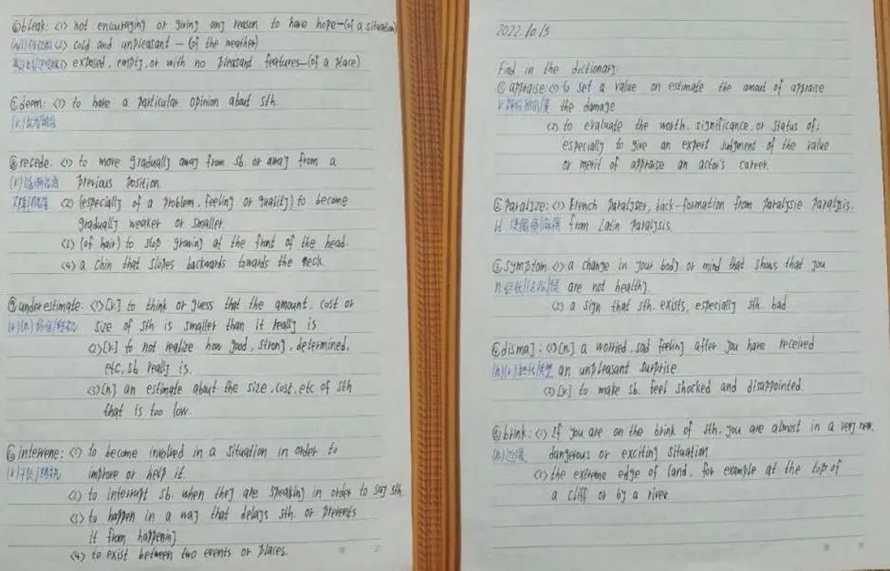 ⑥bleak: <1> not encouraging or giving any reason to have hope—(of a situation)
<2> cold and unpleasant — (of the weather)
<3> exposed, empty, or with no pleasant features—(of a place)
deem: <1> to have a particular opinion about sth.
recede: <1> to more gradually away from sb. or away from a
previous position.
<2> (especially of a problem, feeling or quality) to become
gradually weaker or smaller.
(of hair) to stop growing at the front of the head.
<4> a chin that slopes backwards towards the neck.
underestimate: <1>[v.] to think or guess that the amount, cost or
size of sth is smaller than it really is
<2>[v.] to not realize how good, strong, determined,
etc, sb really is.
<3>[n] an estimate about the size, cost, etc of sth
that is too low.
intervene: <1> to become involved in a situation in order to
improve or help it.
<2> to interrupt sb. when they are speaking in order to say sth.
<3> to happen in a way that delays sth. or prevents
it from happening
<4> to exist between two events or places.
2022.10.13
Find in the dictionary:
① appraise: <1> to set a value on estimate the amout of appraise
the damage
<2> to evaluate the worth, significance, or status of;
especially to give an expert judgment of the value
or merit of appraise an actor's career.
paralize: <1> French paralyser, back-formation from paralysie paralysis.
from Latin paralysis.
symptom: <1> a change in your body or mind that shows that you
are not healthy.
<2> a sign that sth. exists, especially sth. bad
dismay: <1>[n.] a worried, sad feeling after you have received
an unpleasant surprise.
<2>[v.] to make sb. feel shocked and disappointed.
brink: <1> If you are on the brink of sth, you are almost in a very new,
dangerous or exciting situation
the extreme edge of land, for example at the top of
a cliff or by a river